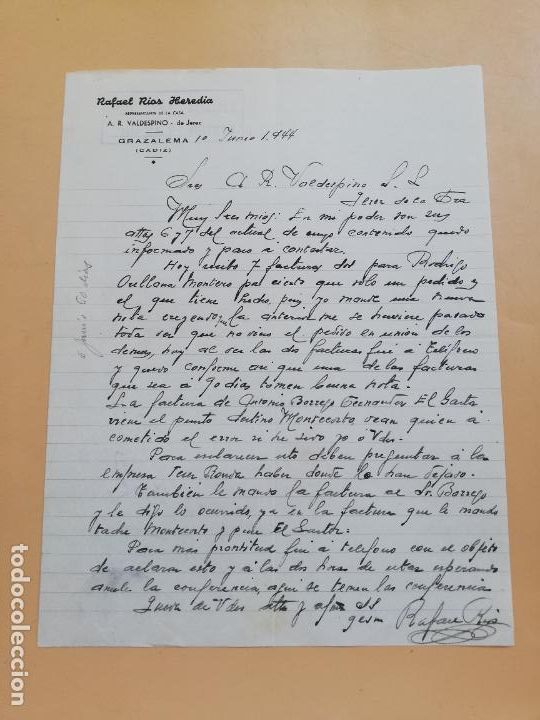 Rafael Rios Heredia
REPRESENTANTE DE LA CASA
A. R. VALDESPINO - de Jerez
GRAZALEMA
(CADIZ)
10 Junio 1.944
Sres A. R. Valdespino S. L
Jerez de la Fra
Muy Sres mios: En mi poder son sus
attas 6 y 7 del actual de cuyo contenido quedo
informado y paso a contestar.
Hoy recibo 7 facturas del para Rodrigo
Orellana Montero por cierto que solo un pedido es
el que tiene hecho, pues yo mande una nueva
nota creyendo que la anterior me se hubiere pasado
toda vez que no vino el pedido en union de los
demas, hoy al ver las dos facturas fui a teléfono
y quedo conforme en que una de las facturas
que sea á 90 dias tomen buena nota.
La factura de Antonio Borrego Fernandez El Gastor
viene el punto destino Montecorto, vean quien á
cometido el error si he sido yo ó Vdes.
Para esclarecer esto deben preguntar á la
empresa Ronda haber donde lo han dejado.
También le mando la factura al Sr. Borrego
y le digo lo ocurrido, ya en la factura que le mando
tache Montecorto y puse El Gastor.
Para mas prontitud fui á teléfono con el objeto
de aclarar esto y á las dos horas de estar esperando
anulé la conferencia, aqui se tienen las conferencias
Queda de Vdes atto y afmo SS
qesm Rafael Rios
todocoleccion